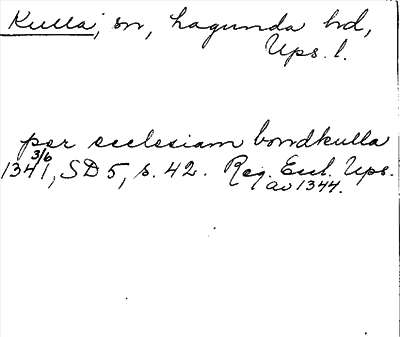 Kulla, sn, hagunda hd,
Ups. l.
per ecclesiam bondkulla
1341 3/6, SD 5, s. 42. Reg. Eccl. Ups.
av 1344.